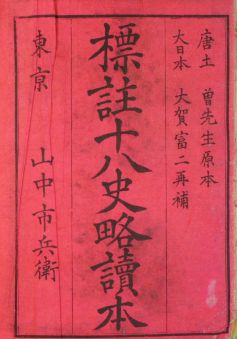 唐土 曽先生原本
大日本 大賀富二再補
標註十八史略讀本
東京 山中市兵衛